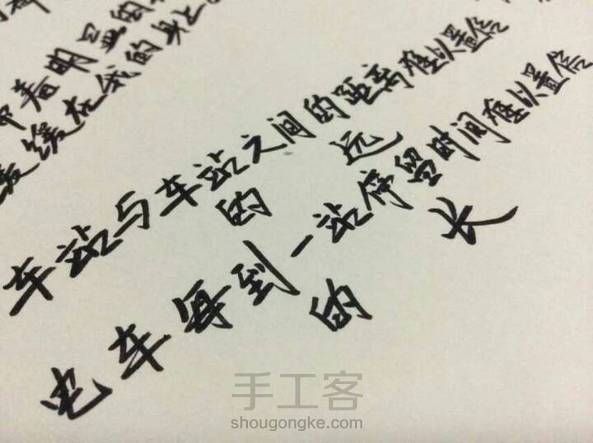 着明显的
缓在我的身上
车站与车站之间的距离难以置信
的 远
电车每到一站停留时间难以置信
的 长
手工客
shougongke.com